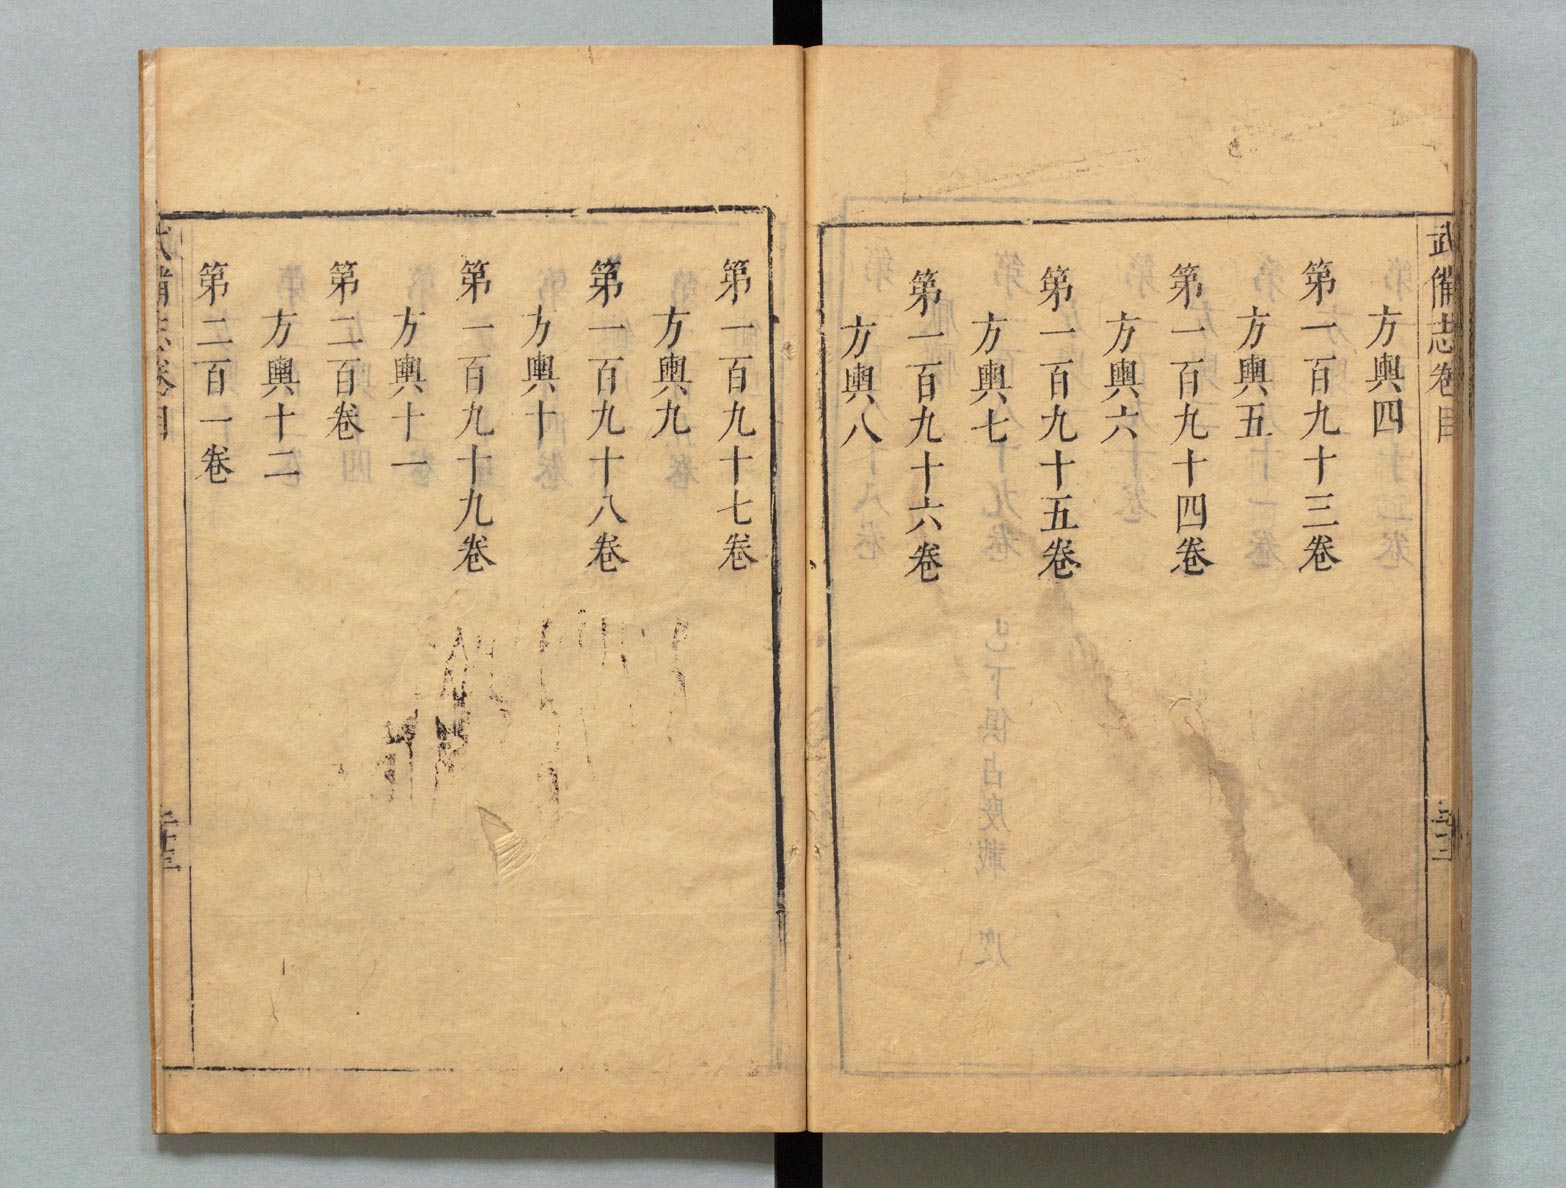 武備志卷目
方輿四
第一百九十三卷
方輿五
第一百九十四卷
方輿六
第一百九十五卷
方輿七
第一百九十六卷
方輿八
第一百九十七卷
方輿九
第一百九十八卷
方輿十
第一百九十九卷
方輿十一
第二百卷
方輿十二
第二百一卷